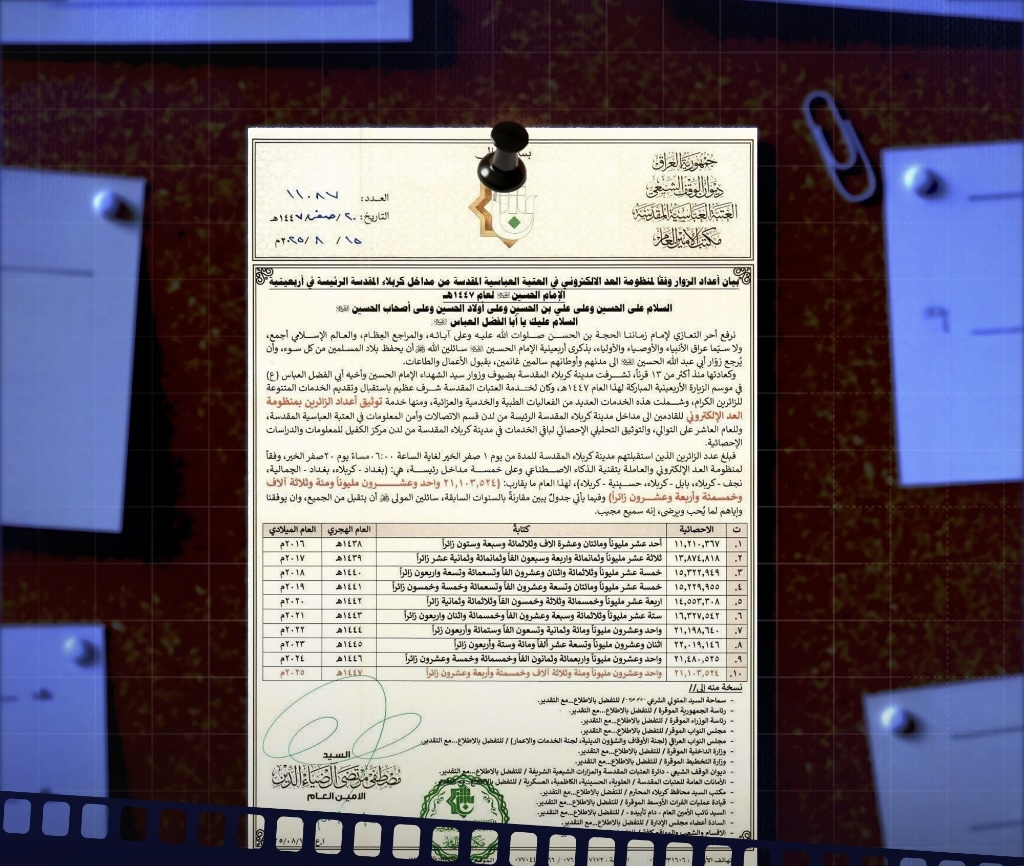 جمهورية العراق
ديوان الوقف الشيعي
العتبة العباسية المقدسة
مكتب الأمين العام
العدد: ١١٠٨٧
التاريخ: ٢٠/صفر/١٤٤٧هـ
١٥/ ٨ /٢٠٢٥م
بيان أعداد الزوار وفقاً لمنظومة العد الالكتروني في العتبة العباسية المقدسة من مداخل كربلاء المقدسة الرئيسة في أربعينية
الإمام الحسين لعام ١٤٤٧هـ
السلام على الحسين وعلى علي بن الحسين وعلى أولاد الحسين وعلى أصحاب الحسين
السلام عليك يا أبا الفضل العباس
نرفع أحر التعازي لإمام زماننا الحجة بن الحسن صلوات الله عليه وعلى آبائه، والمراجع العظام، والعالم الإسلامي أجمع،
ولا سيّما عراق الأنبياء والأوصياء والأولياء، بذكرى أربعينية الإمام الحسين سائلين الله أن يحفظ بلاد المسلمين من كل سوء، وأن
يُرجع زوّار أبي عبد الله الحسين الى مدنهم وأوطانهم سالمين غانمين، بقبول الأعمال والطاعات.
وكعادتها منذ أكثر من ١٣ قرناً، تشرفت مدينة كربلاء المقدسة بضيوف وزوار سيد الشهداء الإمام الحسين وأخيه أبي الفضل العباس (ع)
في موسم الزيارة الأربعينية المباركة لهذا العام ١٤٤٧هـ، وكان لخدمة العتبات المقدسة شرف عظيم باستقبال وتقديم الخدمات المتنوعة
للزائرين الكرام، وشملت هذه الخدمات العديد من الفعاليات الطبية والخدمية والعزائية، ومنها خدمة توثيق أعداد الزائرين بمنظومة
العد الإلكتروني للقادمين الى مداخل مدينة كربلاء المقدسة الرئيسة من لدن قسم الاتصالات وأمن المعلومات في العتبة العباسية المقدسة،
وللعام العاشر على التوالي، والتوثيق التحليلي الإحصائي لباقي الخدمات في مدينة كربلاء المقدسة من لدن مركز الكفيل للمعلومات والدراسات
الإحصائية.
فبلغ عدد الزائرين الذين استقبلتهم مدينة كربلاء المقدسة للمدة من يوم ١ صفر الخير لغاية الساعة ٠٦:٠٠ مساءً يوم ٢٠صفر الخير، وفقاً
لمنظومة العد الإلكتروني والعاملة بتقنية الذكاء الاصطناعي وعلى خمسة مداخل رئيسة، هي: (بغداد - كربلاء، بغداد - الجمالية،
نجف - كربلاء، بابل - كربلاء، حسينية - كربلاء)، لهذا العام ما يقارب: (٢١,١٠٣,٥٢٤ واحد وعشرون مليوناً ومئة وثلاثة آلاف
وخمسمئة وأربعة وعشرون زائراً) وفيما يأتي جدولٌ يبين مقارنةً بالسنوات السابقة، سائلين المولى أن يتقبل من الجميع، وان يوفقنا
وإياهم لما يُحب ويرضى، إنه سميع مجيب.
ت الاحصائية كتابةً العام الهجري العام الميلادي
١. ١١,٢١٠,٣٦٧ أحد عشر مليوناً ومائتان وعشرة الاف وثلاثمائة وسبعة وستون زائراً ١٤٣٨هـ ٢٠١٦م
٢. ١٣,٨٧٤,٨١٨ ثلاثة عشر مليوناً وثمانمائة واربعة وسبعون الفاً وثمانمائة وثمانية عشر زائراً ١٤٣٩هـ ٢٠١٧م
٣. ١٥,٣٢٢,٩٤٩ خمسة عشر مليوناً وثلاثمائة واثنان وعشرون الفاً وتسعمائة وتسعة واربعون زائراً ١٤٤٠هـ ٢٠١٨م
٤. ١٥,٢٢٩,٩٥٥ خمسة عشر مليوناً ومائتان وتسعة وعشرون الفاً وتسعمائة وخمسة وخمسون زائراً ١٤٤١هـ ٢٠١٩م
٥. ١٤,٥٥٣,٣٠٨ اربعة عشر مليوناً وخمسمائة وثلاثة وخمسون الفاً وثلاثمائة وثمانية زائراً ١٤٤٢هـ ٢٠٢٠م
٦. ١٦,٣٢٧,٥٤٢ ستة عشر مليوناً وثلاثمائة وسبعة وعشرون الفاً وخمسمائة واثنان واربعون زائراً ١٤٤٣هـ ٢٠٢١م
٧. ٢١,١٩٨,٦٤٠ واحد وعشرون مليوناً ومائة وثمانية وتسعون الفاً وستمائة وأربعون زائراً ١٤٤٤هـ ٢٠٢٢م
٨. ٢٢,٠١٩,١٤٦ اثنان وعشرون مليوناً وتسعة عشر ألفاً ومائة وستة وأربعون زائراً ١٤٤٥هـ ٢٠٢٣م
٩. ٢١,٤٨٠,٥٢٥ واحد وعشرون مليوناً واربعمائة وثمانون الفاً وخمسمائة وخمسة وعشرون زائراً ١٤٤٦هـ ٢٠٢٤م
١٠. ٢١,١٠٣,٥٢٤ واحد وعشرون مليوناً ومئة وثلاثة آلاف وخمسمئة وأربعة وعشرون زائراً ١٤٤٧هـ ٢٠٢٥م
نسخة منه إلى//
- سماحة السيد المتولي الشرعي / للتفضل بالاطلاع...مع التقدير.
- رئاسة الجمهورية الموقرة / للتفضل بالاطلاع...مع التقدير.
- رئاسة الوزراء الموقرة / للتفضل بالاطلاع...مع التقدير.
- مجلس النواب الموقر/ للتفضل بالاطلاع...مع التقدير.
- مجلس النواب العراقي (لجنة الأوقاف والشؤون الدينية، لجنة الخدمات والاعمار) / للتفضل بالاطلاع...مع التقدير.
- وزارة الداخلية الموقرة / للتفضل بالاطلاع...مع التقدير.
- وزارة التخطيط الموقرة / للتفضل بالاطلاع...مع التقدير.
- ديوان الوقف الشيعي - دائرة العتبات المقدسة والمزارات الشيعية الشريفة / للتفضل بالاطلاع...مع التقدير.
- الأمانات العامة للعتبات المقدسة / العلوية، الحسينية، الكاظمية، العسكرية / للتفضل بالاطلاع...مع التقدير.
- مكتب السيد محافظ كربلاء المحترم / للتفضل بالاطلاع...مع التقدير.
- قيادة عمليات الفرات الأوسط الموقرة / للتفضل بالاطلاع...مع التقدير.
- السيد نائب الأمين العام - دام تأييده - / للتفضل بالاطلاع...مع التقدير.
- السادة أعضاء مجلس الإدارة / للتفضل بالاطلاع...مع التقدير.
السيد
مصطفى مرتضى آل ضياء الدين
الأمين العام